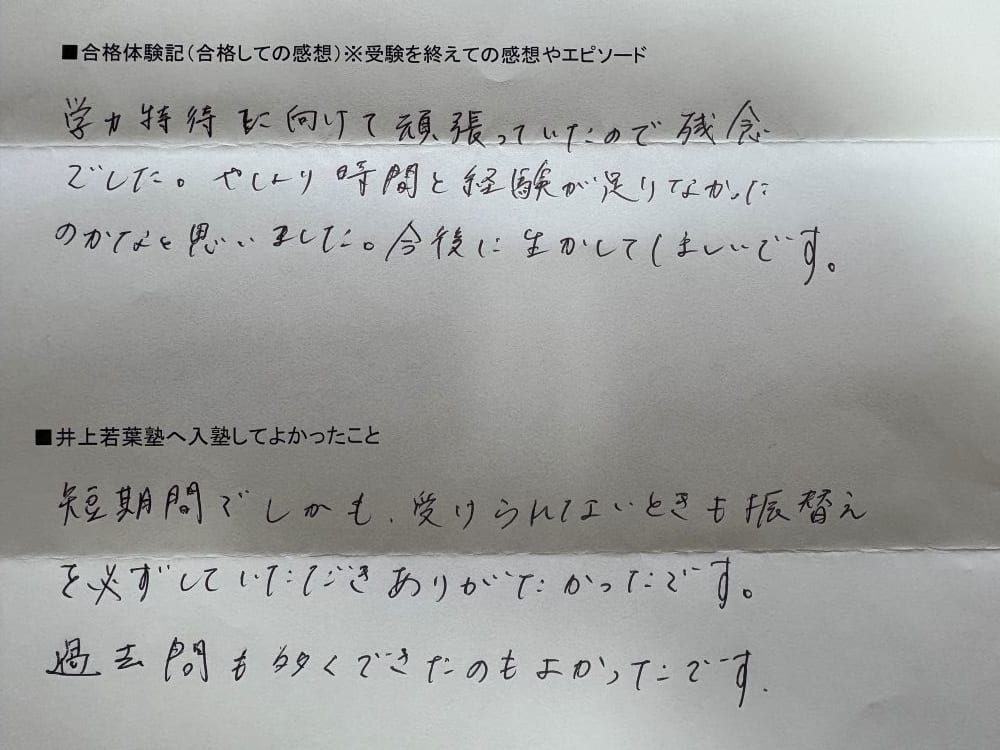 ■合格体験記(合格しての感想)※受験を終えての感想やエピソード
学力特待に向けて頑張っていたので残念
でした。やはり時間と経験が足りなかった
のかなと思いました。今後に生かしてほしいです。
■井上若葉塾へ入塾してよかったこと
短期間でしかも、受けられないときも振替え
を必ずしていただきありがたかったです。
過去問も多くできたのもよかったです.